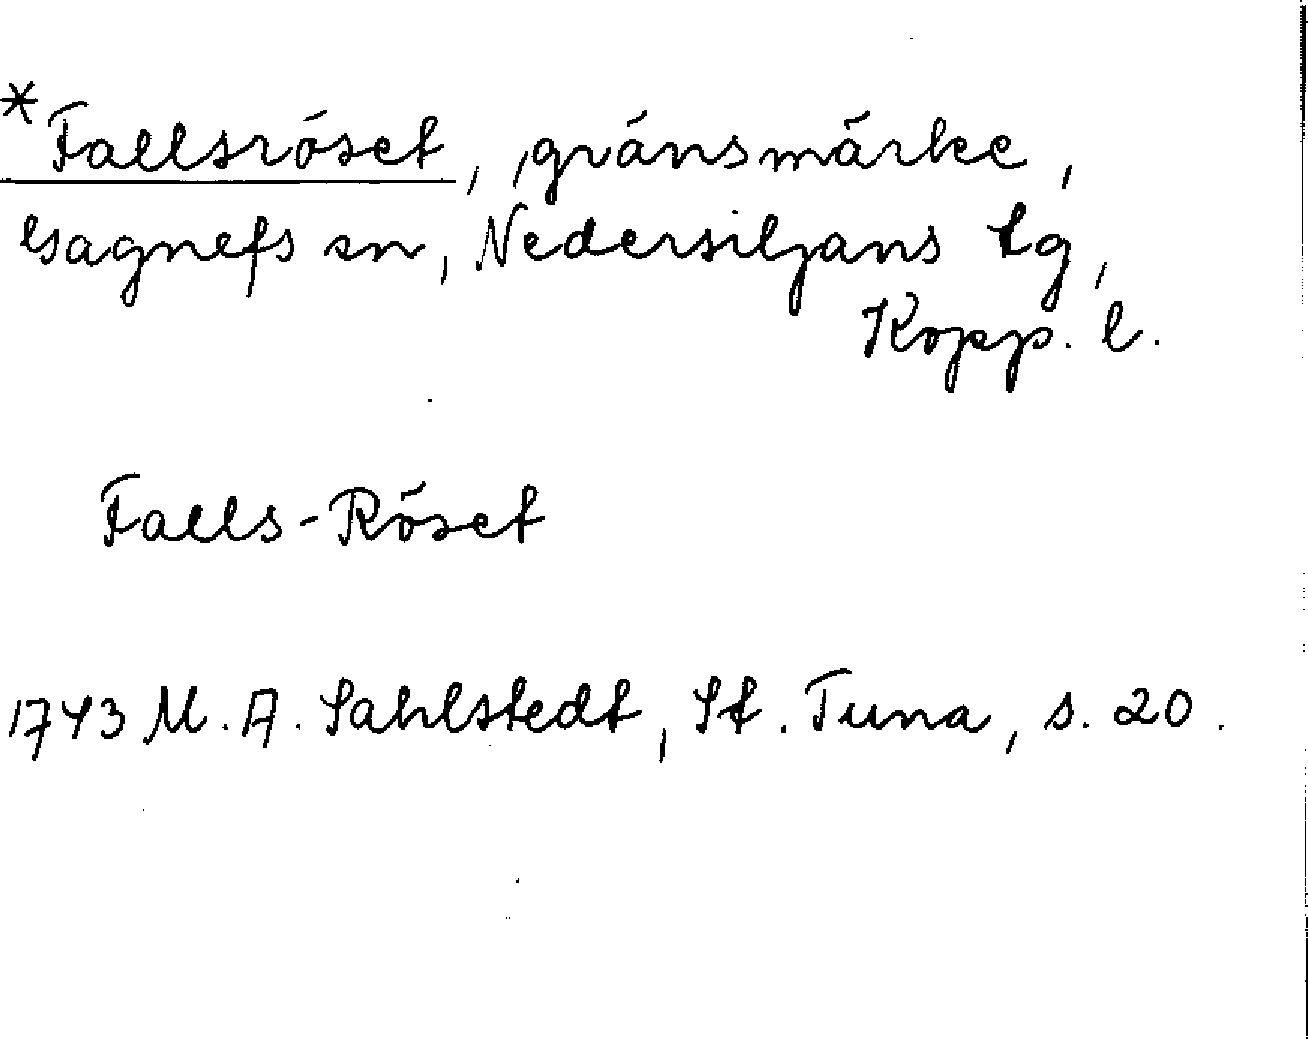 *Fallsröset, gränsmärke,
Gagnefs sn, Nedersiljans tg,
Kopp. l.
Falls-Röset
1743 M. A. Sahlstedt, St. Tuna, s. 20.